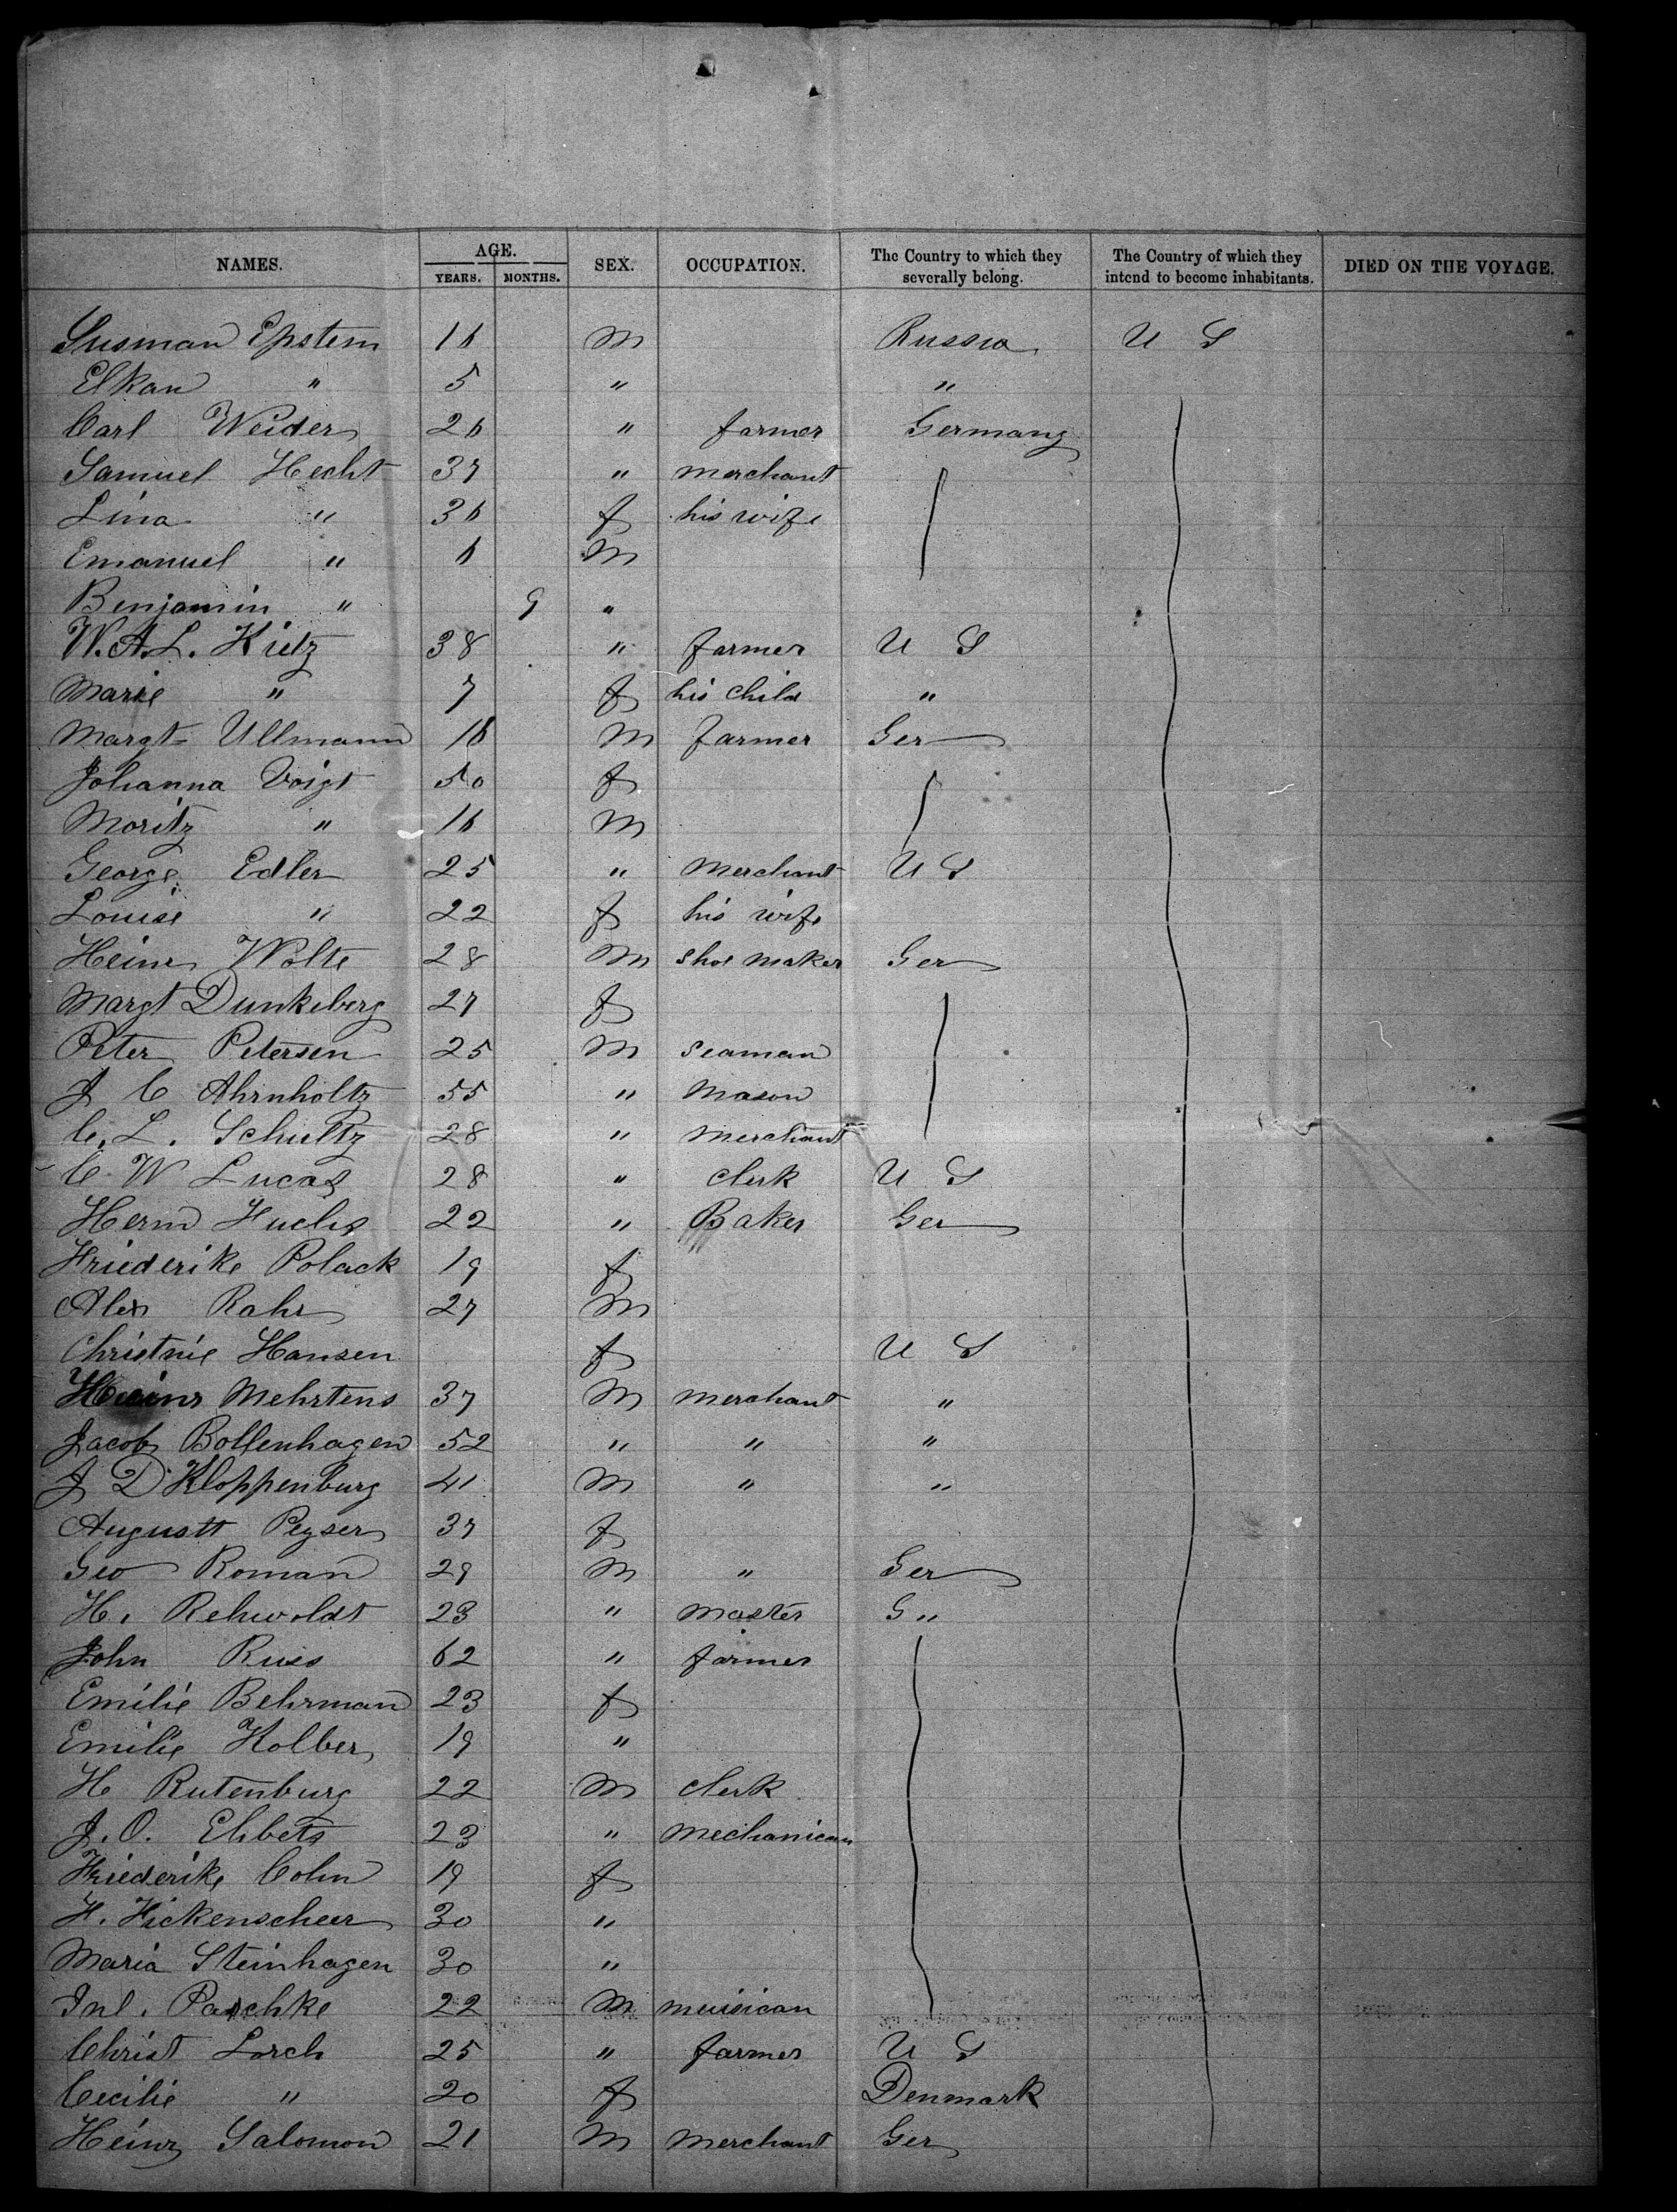 NAMES. AGE. SEX. OCCUPATION. The Country to which they severally belong. The Country of which they intend to become inhabitants. DIED ON THE VOYAGE.
YEARS. MONTHS.
Susman Epstein 16 M Russia U S
Elkan " 5 " "
Carl Weider 26 " farmer Germany
Samuel Hecht 37 " merchant
Lina " 36 f his wife
Emanuel " 6 M
Benjamin " 9 "
W. A. L. Kietz 38 " farmer U S
Marie " 7 f his child "
Margt Ullmann 16 M farmer Ger
Johanna Voigt 50 f
Moritz " 16 M
George Edler 25 " Merchant U S
Louise " 22 f his wife
Heinr Wolte 28 M shoe maker Ger
Margt Dunkeberg 27 f
Peter Petersen 25 M seaman
J C Ahrnholtz 55 " Mason
C. L. Schultz 28 " merchant
C W Lucas 28 " clerk U S
Herm Fuchs 22 " Baker Ger
Friederike Polack 19 f
Alex Rahr 27 M
Christnie Hansen f U S
Heinr Mehrtens 37 M merchant "
Jacob Bollenhagen 52 " " "
J D Kloppenburg 41 M " "
Augustt Peyser 37 f
Geo Roman 29 M " Ger
H. Rehwoldt 23 " master G "
John Russ 62 " farmer
Emilie Behrman 23 f
Emilie Kolber 19 "
H Rutenburg 22 M clerk
J. O. Ehbets 23 " mechanican
Friederike Cohn 19 f
F. Fickenscheer 30 "
Maria Steinhagen 30 "
Jul. Paschke 22 M muisican
Christ Lorch 25 " farmer U S
Cecilie " 20 f Denmark
Heinr Salomon 21 M Merchant Ger